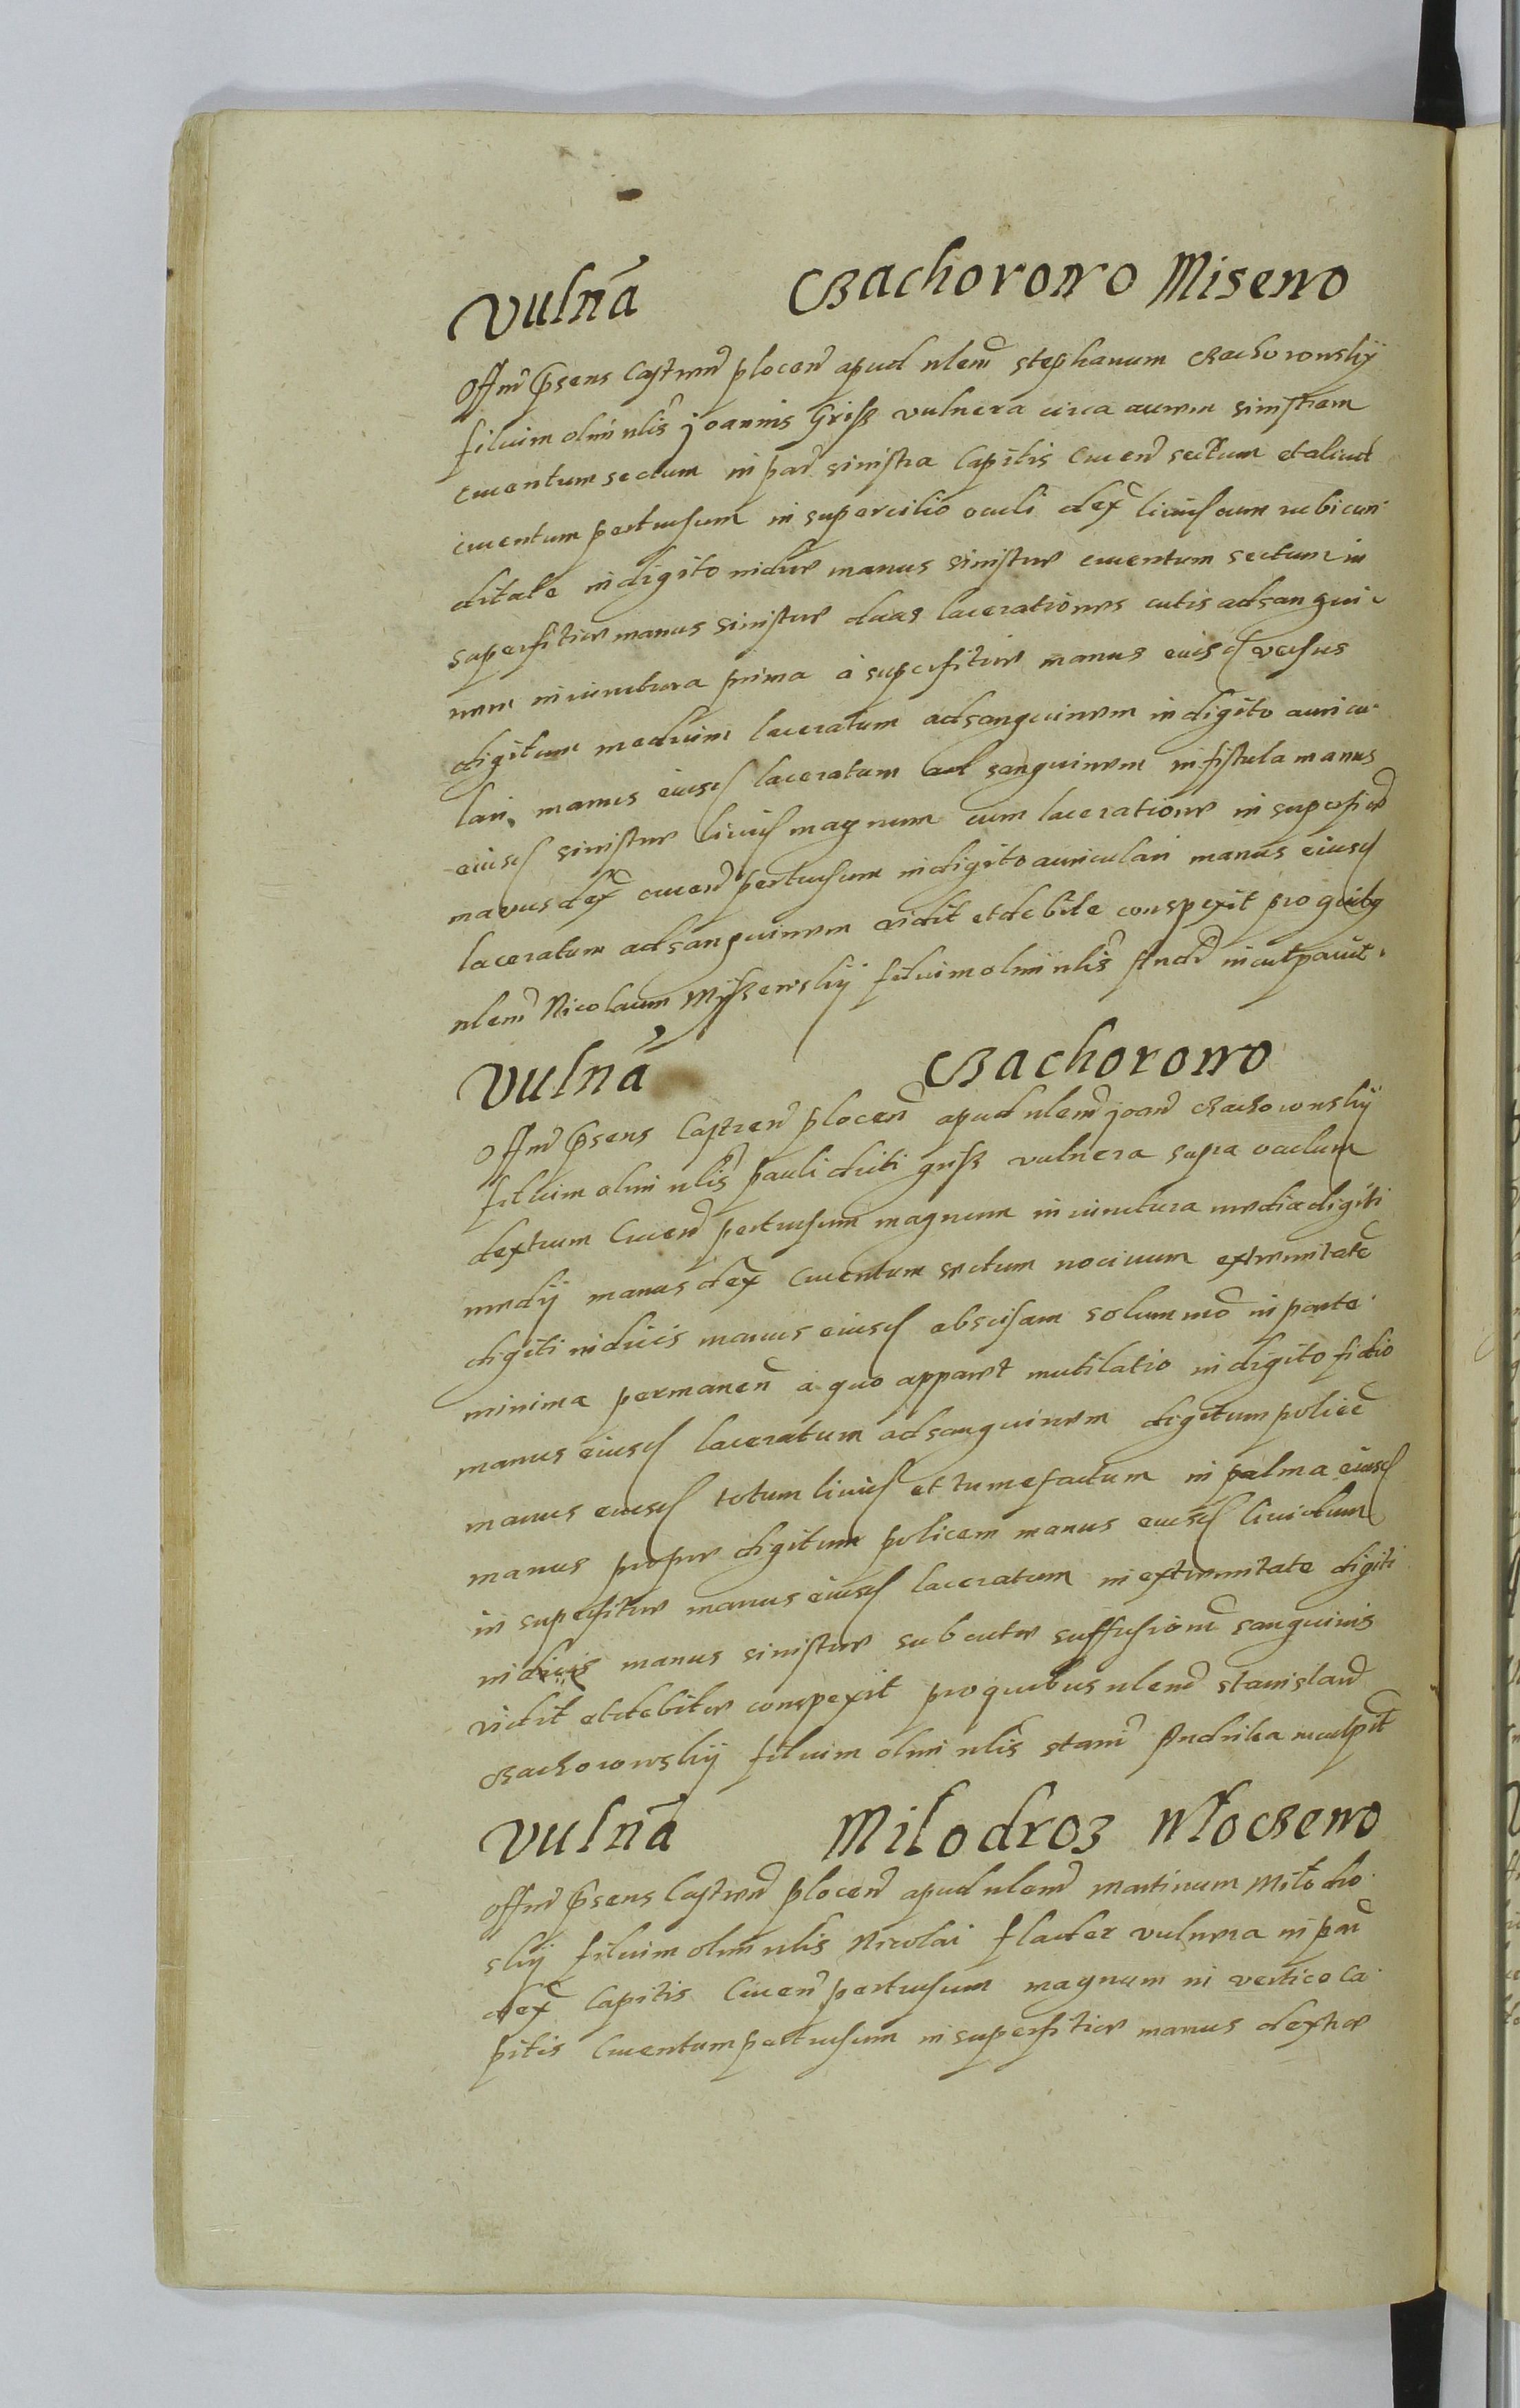 Vulnā Bachorowo Misewo
Offm̃ p̃sens Castren̄ plocen̄ apud nlem̃ stephanum Bachorowskÿ
filium olim nlis̃ joannis Griß vulnera circa aurem sinistram
cruentum sectum in par̃ sinistra Capitis Cruen̄ sectum et aliud
cruentum pertusum in supercilio oculi dex̃ liuid̃ cum rubicun
ditate in digito indice manus sinistre cruentum sectum in
superfitie manus sinistre duas lacerationes cutis ad sangui
nem in iunctura prima a superfitie manus eiusd̃ versus
digitum medium laceratum ad sanguinem in digito auricu
lari manus eiusd̃ laceratum ad sanguinem in fistula manus
eiusd̃ sinistre liuid̃ magnum cum laceratione in superfic̃
manus dex̃ cruen̄ pertusum in digito auriculari manus eiusd̃
laceratum ad sanguinem vidit et debite conspexit pro quibq
nlem̃ Nicolaum Mÿßewskÿ filium olim nlis̃ And̃ inculpauit.
Vulnā Bachorowo
Offm̃ p̃sens Castren̄ plocen̄ apud nlem̃ joan̄ Bachorowskÿ
filium olim nlis̃ pauli dicti griß vulnera supra oculum
dextrum Cruen̄ pertusum magnum in iunctura media digiti
medÿ manus dex̃ Cruentum sectum nociuum extremitatẽ
digiti indicis manus eiusd̃ abscisam solummõ in parte
minima permanen̄ a quo apparet mutilatio in digito fidio
manus eiusd̃ laceratum ad sanguinem digitum policẽ
manus eiusd̃ totum liuid̃ et tumefactum in palma eiusd̃
manus prope digitum policem manus eiusd̃ liuidum
in superfitie manus eiusd̃ laceratum in extremitate digiti
indicis manus sinistre sub cute suffusionẽ sanguinis
vidit et debite conspexit pro quibus nlem̃ stanislaũ
Bachorowskÿ filium olim nlis̃ stani̇̃ Andrika inculpit̃
Vulnā Milodroz Włoczewo
Offm̃ p̃sens Castren̄ plocen̄ apud nlem̃ Martinum Miłodro
skÿ filium olim nlis Nicolai flader vulnera in par̃
dex̃ Capitis Cruen̄ pertusum magnum in vertice Ca
pitis Cruentum pertusum in superfitie manus dextre